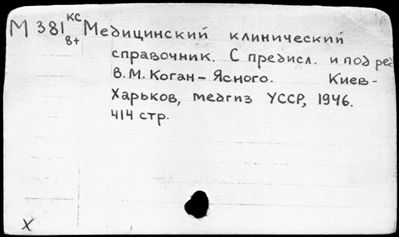 М 381 КС Медицинский клинический
8+ справочник. С предисл. и под ред
В.М. Коган-Ясного. Киев-
Харьков, медгиз УССР, 1946.
414 стр.
X